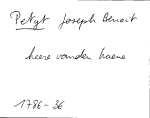 Petyt Joseph Benoit
heere vanden haene
1786-36